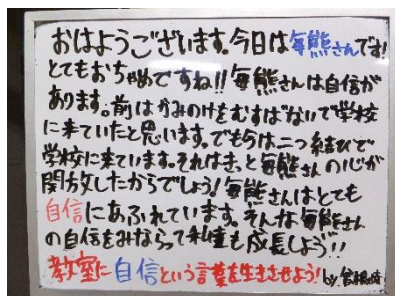 おはようございます。今日は毎熊さんです!
とてもおちゃめですね!!毎熊さんは自信が
あります。前はかみのけをむすばないで学校
に来ていたと思います。でも今は二つ結びで
学校に来ています。それはきっと毎熊さんの心が
開放したからでしょう!毎熊さんはとても
自信にあふれています。そんな毎熊さん
の自信をみならって私達も成長しよう!!
教室に自信という言葉を生きさせよう! by